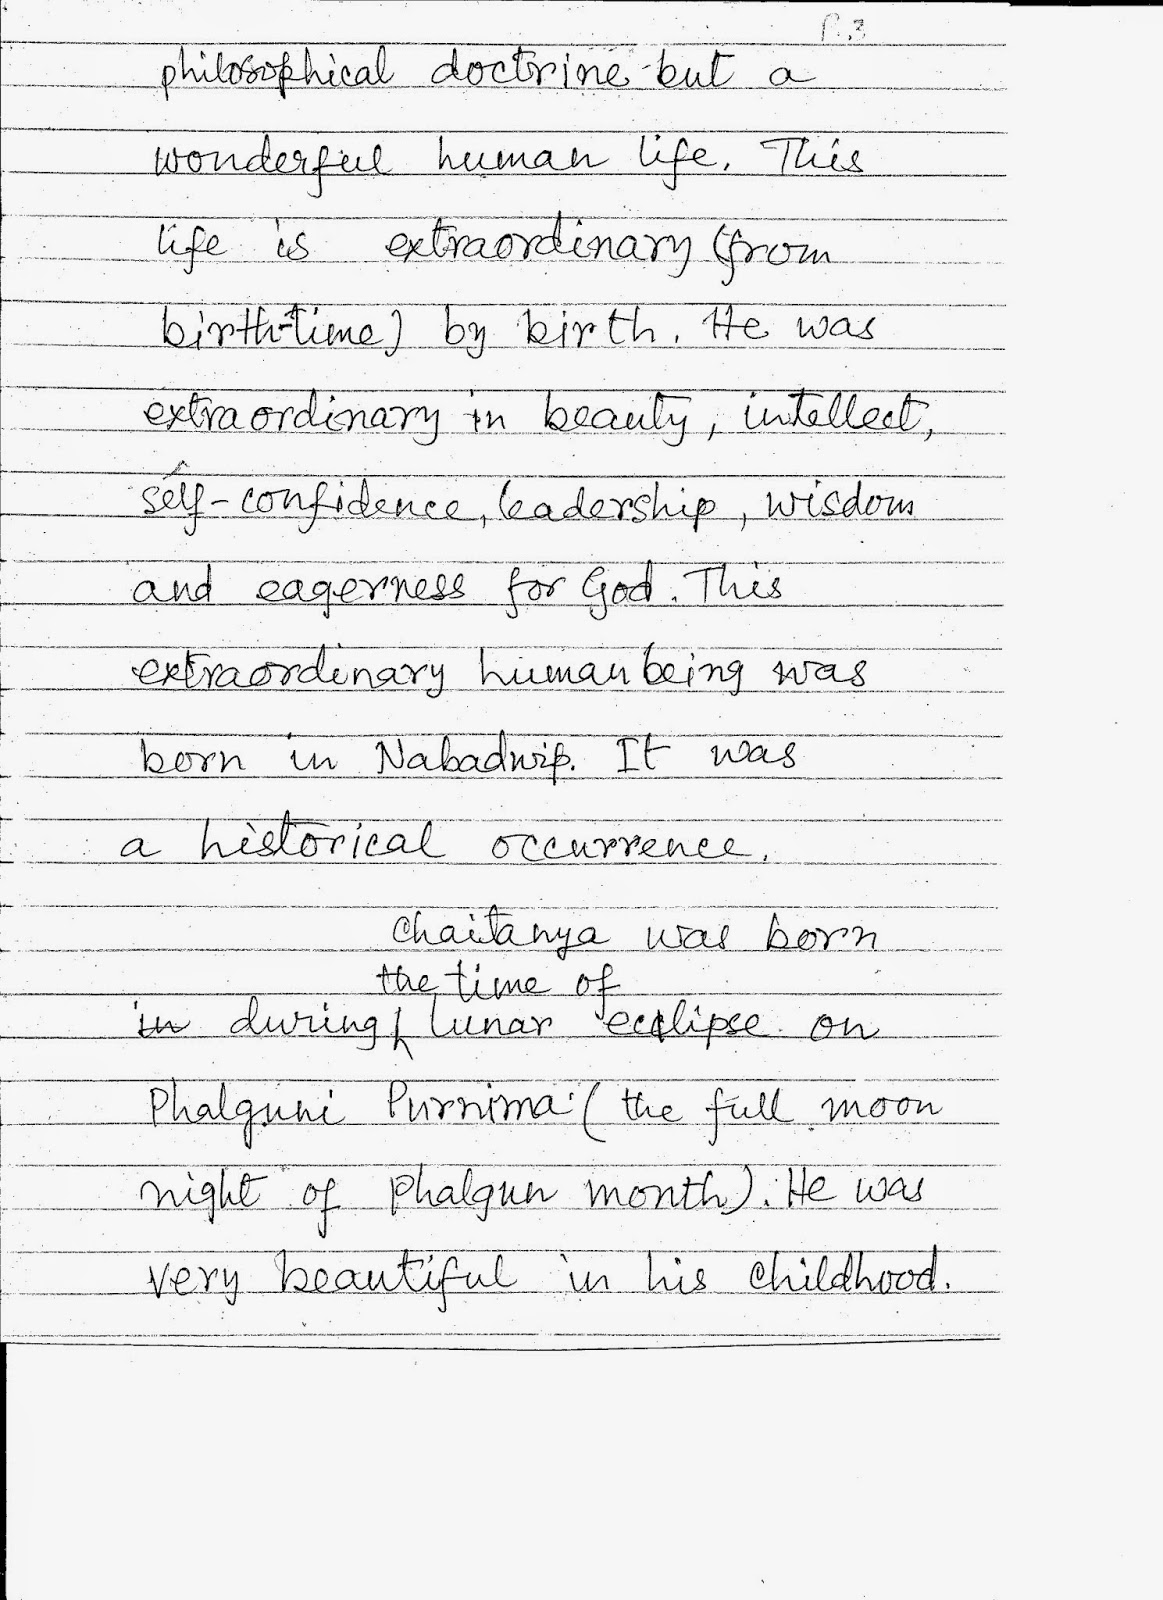 P.3
philosophical doctrine but a
wonderful human life. This
life is extraordinary (from
birth-time) by birth. He was
extraordinary in beauty, intellect,
self-confidence, leadership, wisdom
and eagerness for God. This
extraordinary human being was
born in Nabadwip. It was
a historical occurrence.
Chaitanya was born
the time of
in during lunar eclipse on
Phalguni Purnima (the full moon
night of Phalgun month). He was
very beautiful in his childhood.